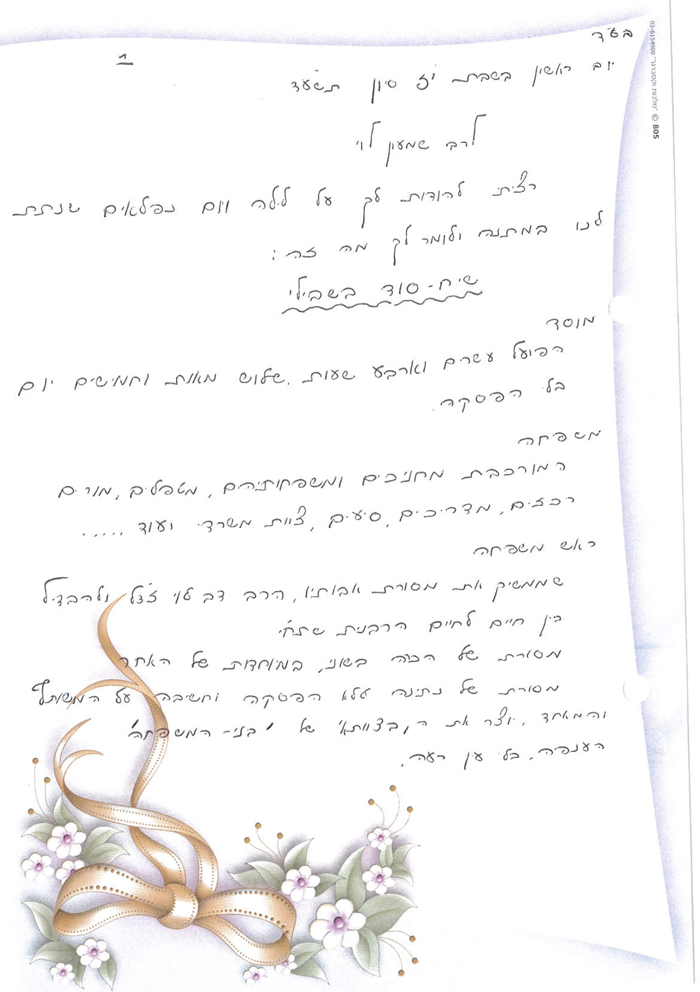 בס"ד
1
יום ראשון בשבת י"ז סיון תשע"ד
לרבי שמעון לוי
רציתי להודות לך על לילה ויום נפלאים שנתת
לנו במתנה ולומר לך מה זה:
שיח-סוד בשבילי
מוסד
הפועל עשרים וארבע שעות, שלוש מאות וחמישים יום
בלי הפסקה.
משפחה
המורכבת מחניכים ומשפחותיהם, מטפלים, מורים
רכזים, מדריכים, סיעים, צוות משרדי ועוד .....
ראש משפחה
שממשיך את מסורת אבותיו, הרב דב לוי זצ"ל ולהבדיל
בין חיים לחיים הרבנית שתחי'
מסורת של הכרה בשוני, במיוחדות של האחר
מסורת של נתינה ללא הפסקה וחשיבה על המשותף
והמאחד, יוצר את ה"בצוותא" של "בני-המשפחה"
הענפה. בלי עין רעה.
805 ©
03-6154900